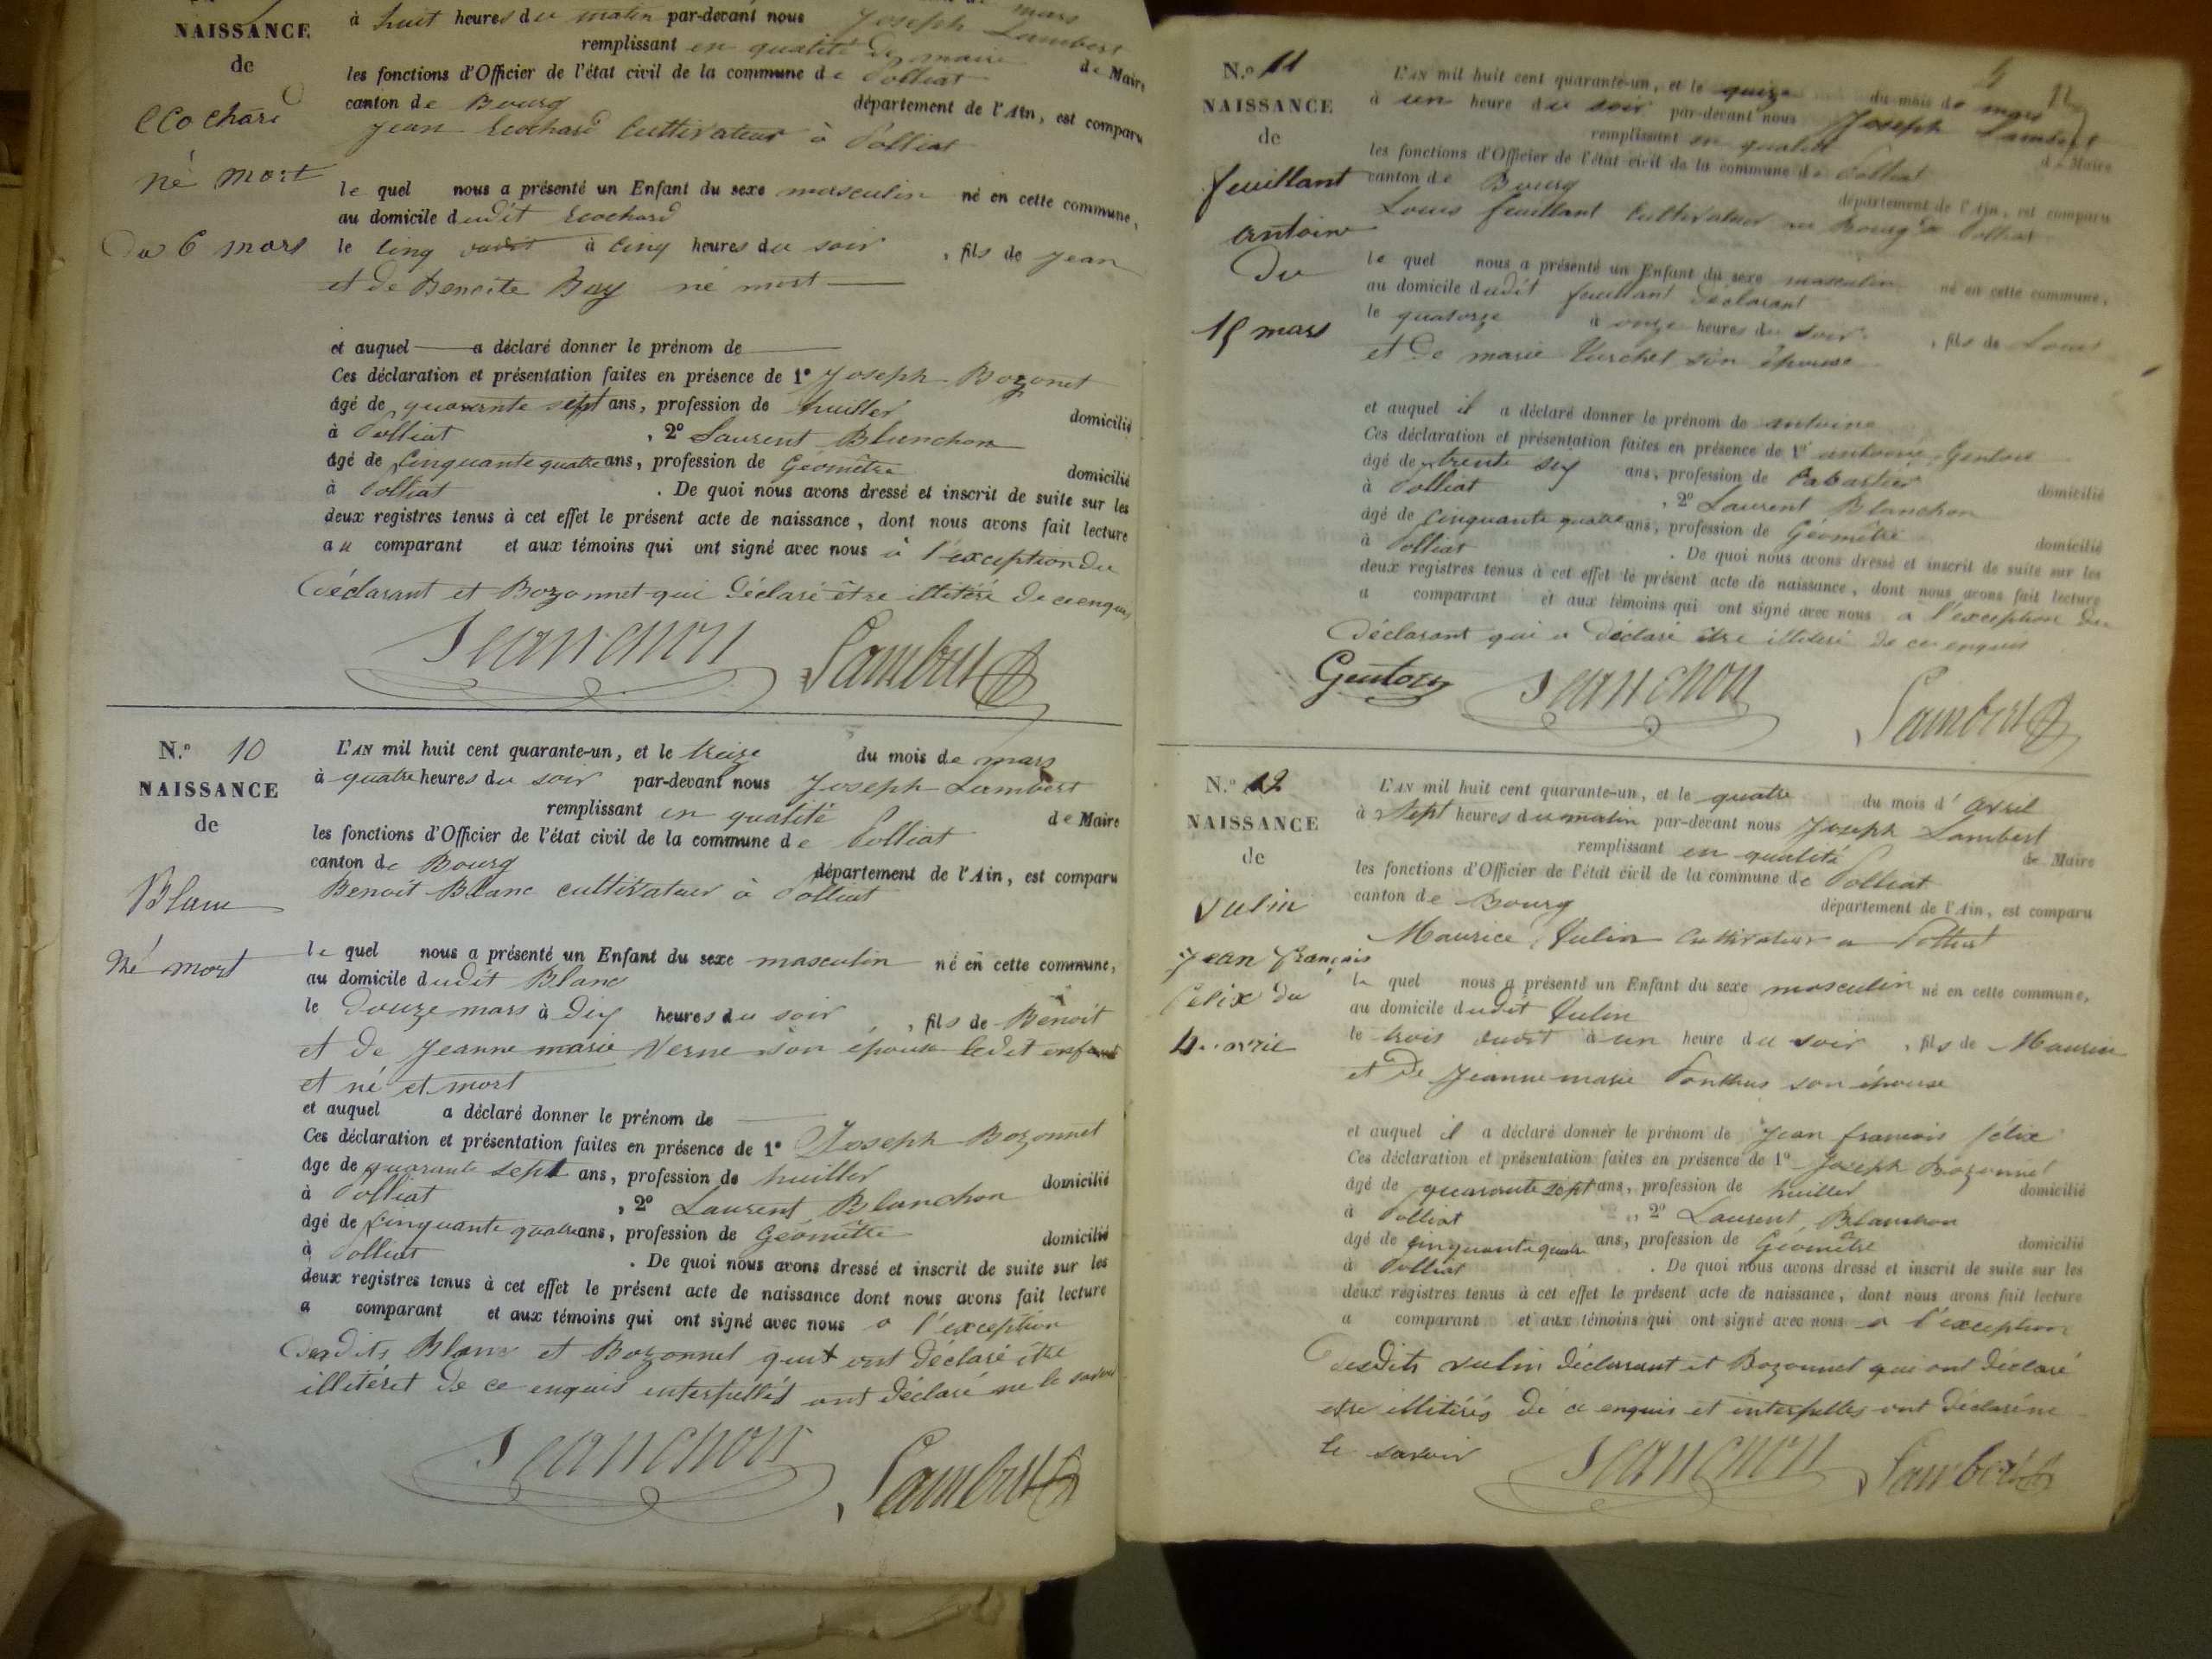 mars
NAISSANCE
de
ecochard
né mort
Du 6 mars
à huit heures du matin par-devant nous Joseph Lambert
remplissant en qualité de maire de Maire
les fonctions d'Officier de l'état civil de la commune de Polliat
canton de Bourg département de l'Ain, est comparu
Jean Ecochard Cultivateur à Polliat
le quel nous a présenté un Enfant du sexe masculin né en cette commune,
au domicile dudit Ecochard
le cinq à cinq heures du soir , fils de Jean
et de Benoite Buy né mort
et auquel a déclaré donner le prénom de
Ces déclaration et présentation faites en présence de 1° Joseph Bozonet
âgé de quarante sept ans, profession de huiller domicilié
à Polliat , 2° Laurent Blanchon
âgé de Cinquante quatre ans, profession de Géomêtre domicilié
à Polliat . De quoi nous avons dressé et inscrit de suite sur les
deux registres tenus à cet effet le présent acte de naissance, dont nous avons fait lecture
au comparant et aux témoins qui ont signé avec nous à l'exception du
Déclarant et Bozonnet qui déclaré être illitéré de ce enquis
Blanchon Lambert
N.° 10
NAISSANCE
de
Blanc
Né mort
L'AN mil huit cent quarante-un, et le treize du mois de mars
à quatre heures du soir par-devant nous Joseph Lambert
remplissant en qualité de Maire
les fonctions d'Officier de l'état civil de la commune de Polliat
canton de Bourg département de l'Ain, est comparu
Benoit Blanc cultivateur à Polliat
le quel nous a présenté un Enfant du sexe masculin né en cette commune,
au domicile dudit Blanc
le Douze mars à dix heures du soir , fils de Benoit
et de Jeanne marie Verne son épouse ledit enfant
et né et mort
et auquel a déclaré donner le prénom de
Ces déclaration et présentation faites en présence de 1° Joseph Bozonnet
âge de quarante sept ans, profession de huiller domicilié
à Polliat , 2° Laurent Blanchon
âgé de Cinquante quatre ans, profession de Géomêtre domicilié
à Polliat . De quoi nous avons dressé et inscrit de suite sur les
deux registres tenus à cet effet le présent acte de naissance dont nous avons fait lecture
a comparant et aux témoins qui ont signé avec nous a l'exception
Desdits Blanc et Bozonnet qui ont déclaré être
illitéret de ce enquis interpellés ont déclaré ne le savoir
Blanchon Lambert
N.° 11
NAISSANCE
de
feuillant
antoine
Du
15 mars
L'AN mil huit cent quarante-un, et le quize du mois de mars
à un heure du soir par-devant nous Joseph Lambert
remplissant en qualité de Maire
les fonctions d'Officier de l'état civil de la commune de Polliat
canton de Bourg département de l'Ain, est comparu
Louis feuillant Cultivateur au Bourg de Polliat
le quel nous a présenté un Enfant du sexe masculin né en cette commune,
au domicile dudit feuillant Declarant
le quatorze à onze heures du soir , fils de Louis
et de marie son épouse
et auquel il a déclaré donner le prénom de antoine
Ces déclaration et présentation faites en présence de 1° antoine Genton
âgé de trente six ans, profession de Cabartier domicilié
à Polliat , 2° Laurent Blanchon
âgé de Cinquante quatre ans, profession de Géomêtre domicilié
à Polliat . De quoi nous avons dressé et inscrit de suite sur les
deux registres tenus à cet effet le présent acte de naissance, dont nous avons fait lecture
a comparant et aux témoins qui ont signé avec nous a l'exception du
Déclarant qui a déclaré être illitéré de ce enquis
Genton Blanchon Lambert
N.° 12
NAISSANCE
de
Vulin
Jean françois
Celix du
4 avril
L'AN mil huit cent quarante-un, et le quatre du mois d'avril
à Sept heures du matin par-devant nous Joseph Lambert
remplissant en qualité de Maire
les fonctions d'Officier de l'état civil de la commune de Polliat
canton de Bourg département de l'Ain, est comparu
Maurice Vulin Cultivateur a Polliat
le quel nous a présenté un Enfant du sexe masculin né en cette commune,
au domicile dudit Vulin
le trois à un heure du soir , fils de Maurice
et de Jeanne marie Ponthus son épouse
et auquel il a déclaré donner le prénom de Jean francois félix
Ces déclaration et présentation faites en présence de 1° Joseph Bozonnet
âgé de quarante sept ans, profession de huiller domicilié
à Polliat , 2° Laurent Blanchon
âgé de Cinquante quatre ans, profession de Géomêtre domicilié
à Polliat . De quoi nous avons dressé et inscrit de suite sur les
deux registres tenus à cet effet le présent acte de naissance, dont nous avons fait lecture
a comparant et aux témoins qui ont signé avec nous a l'exception
Desdits Vulin déclarant et Bozonnet qui ont déclaré
etre illitérés de ce enquis et interpelles ont déclaré ne
le savoir Blanchon Lambert